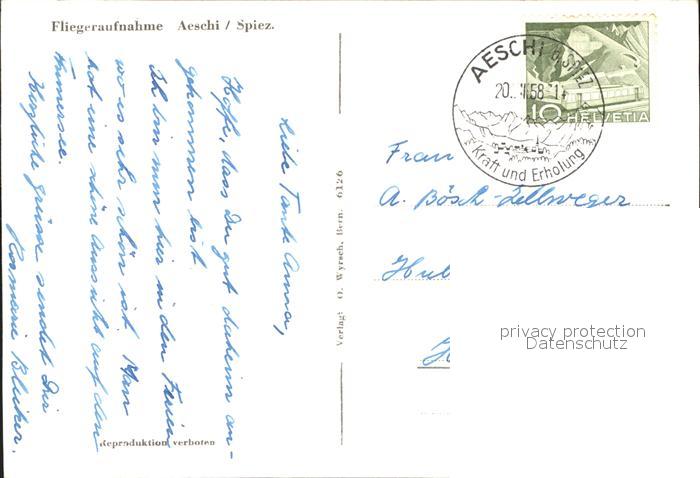 Fliegeraufnahme Aeschi / Spiez.
Liebe Tante Anna,
Hoffe, dass Du gut daheim an-
gekommen bist.
Ich bin nun hier in den Ferien
wo es sehr schön ist. Man
hat eine schöne Aussicht auf den
Thunersee.
Herzliche Grüsse sendet Dir
Rosmarie
Reproduktion verboten
Verlag: O. Wyrsch, Bern. 6126
AESCHI b. SPIEZ
58
Kraft und Erholung
10 HELVETIA
Frau
A. Bösch-Zellweger
privacy protection
Datenschutz